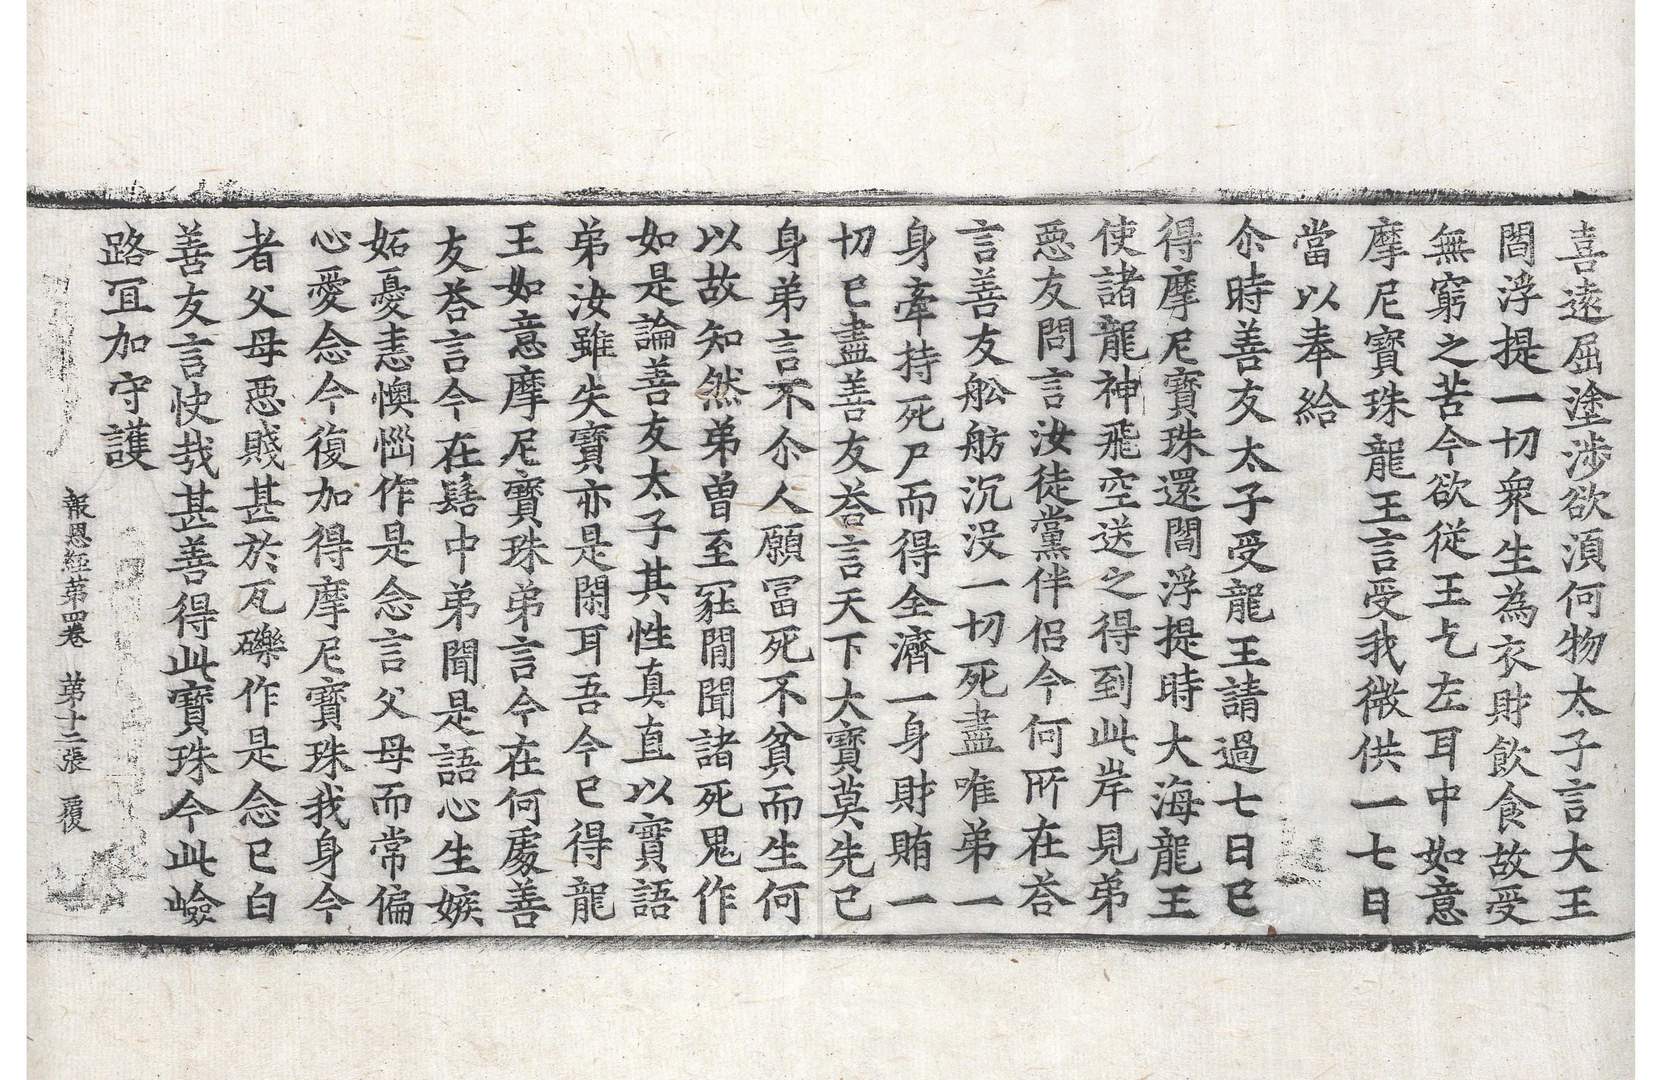 喜遠屈塗涉欲湏何物太子言大王
閻浮提一切衆生為衣財飮食故受
無窮之苦今欲従王乞左耳中如意
摩尼寶珠龍王言受我微供一七日
當以奉給
尒時善友太子受龍王請過七日已
得摩尼寶珠還閻浮提時大海龍王
使諸龍神飛空送之得到此岸見弟
惡友問言汝徒黨伴侶今何所在荅
言善友舩舫沉没一切死盡唯弟一
身牽持死尸而得全濟一身財賄一
切已盡善友荅言天下大寶莫先己
身弟言不尒人願冨死不貧而生何
以故知然弟曽至冢間聞諸死鬼作
如是論善友太子其性真直以實語
弟汝雖失寶亦是閑耳吾今已得龍
王如意摩尼寶珠弟言今在何處善
友荅言今在髻中弟聞是語心生嫉
妬憂恚懊惱作是念言父母而常偏
心愛念今復加得摩尼寶珠我身今
者父母惡賤甚於瓦礫作是念已白
善友言快㢤甚善得此寶珠今此嶮
路冝加守護
報恩經苐四卷 苐十二張 覆